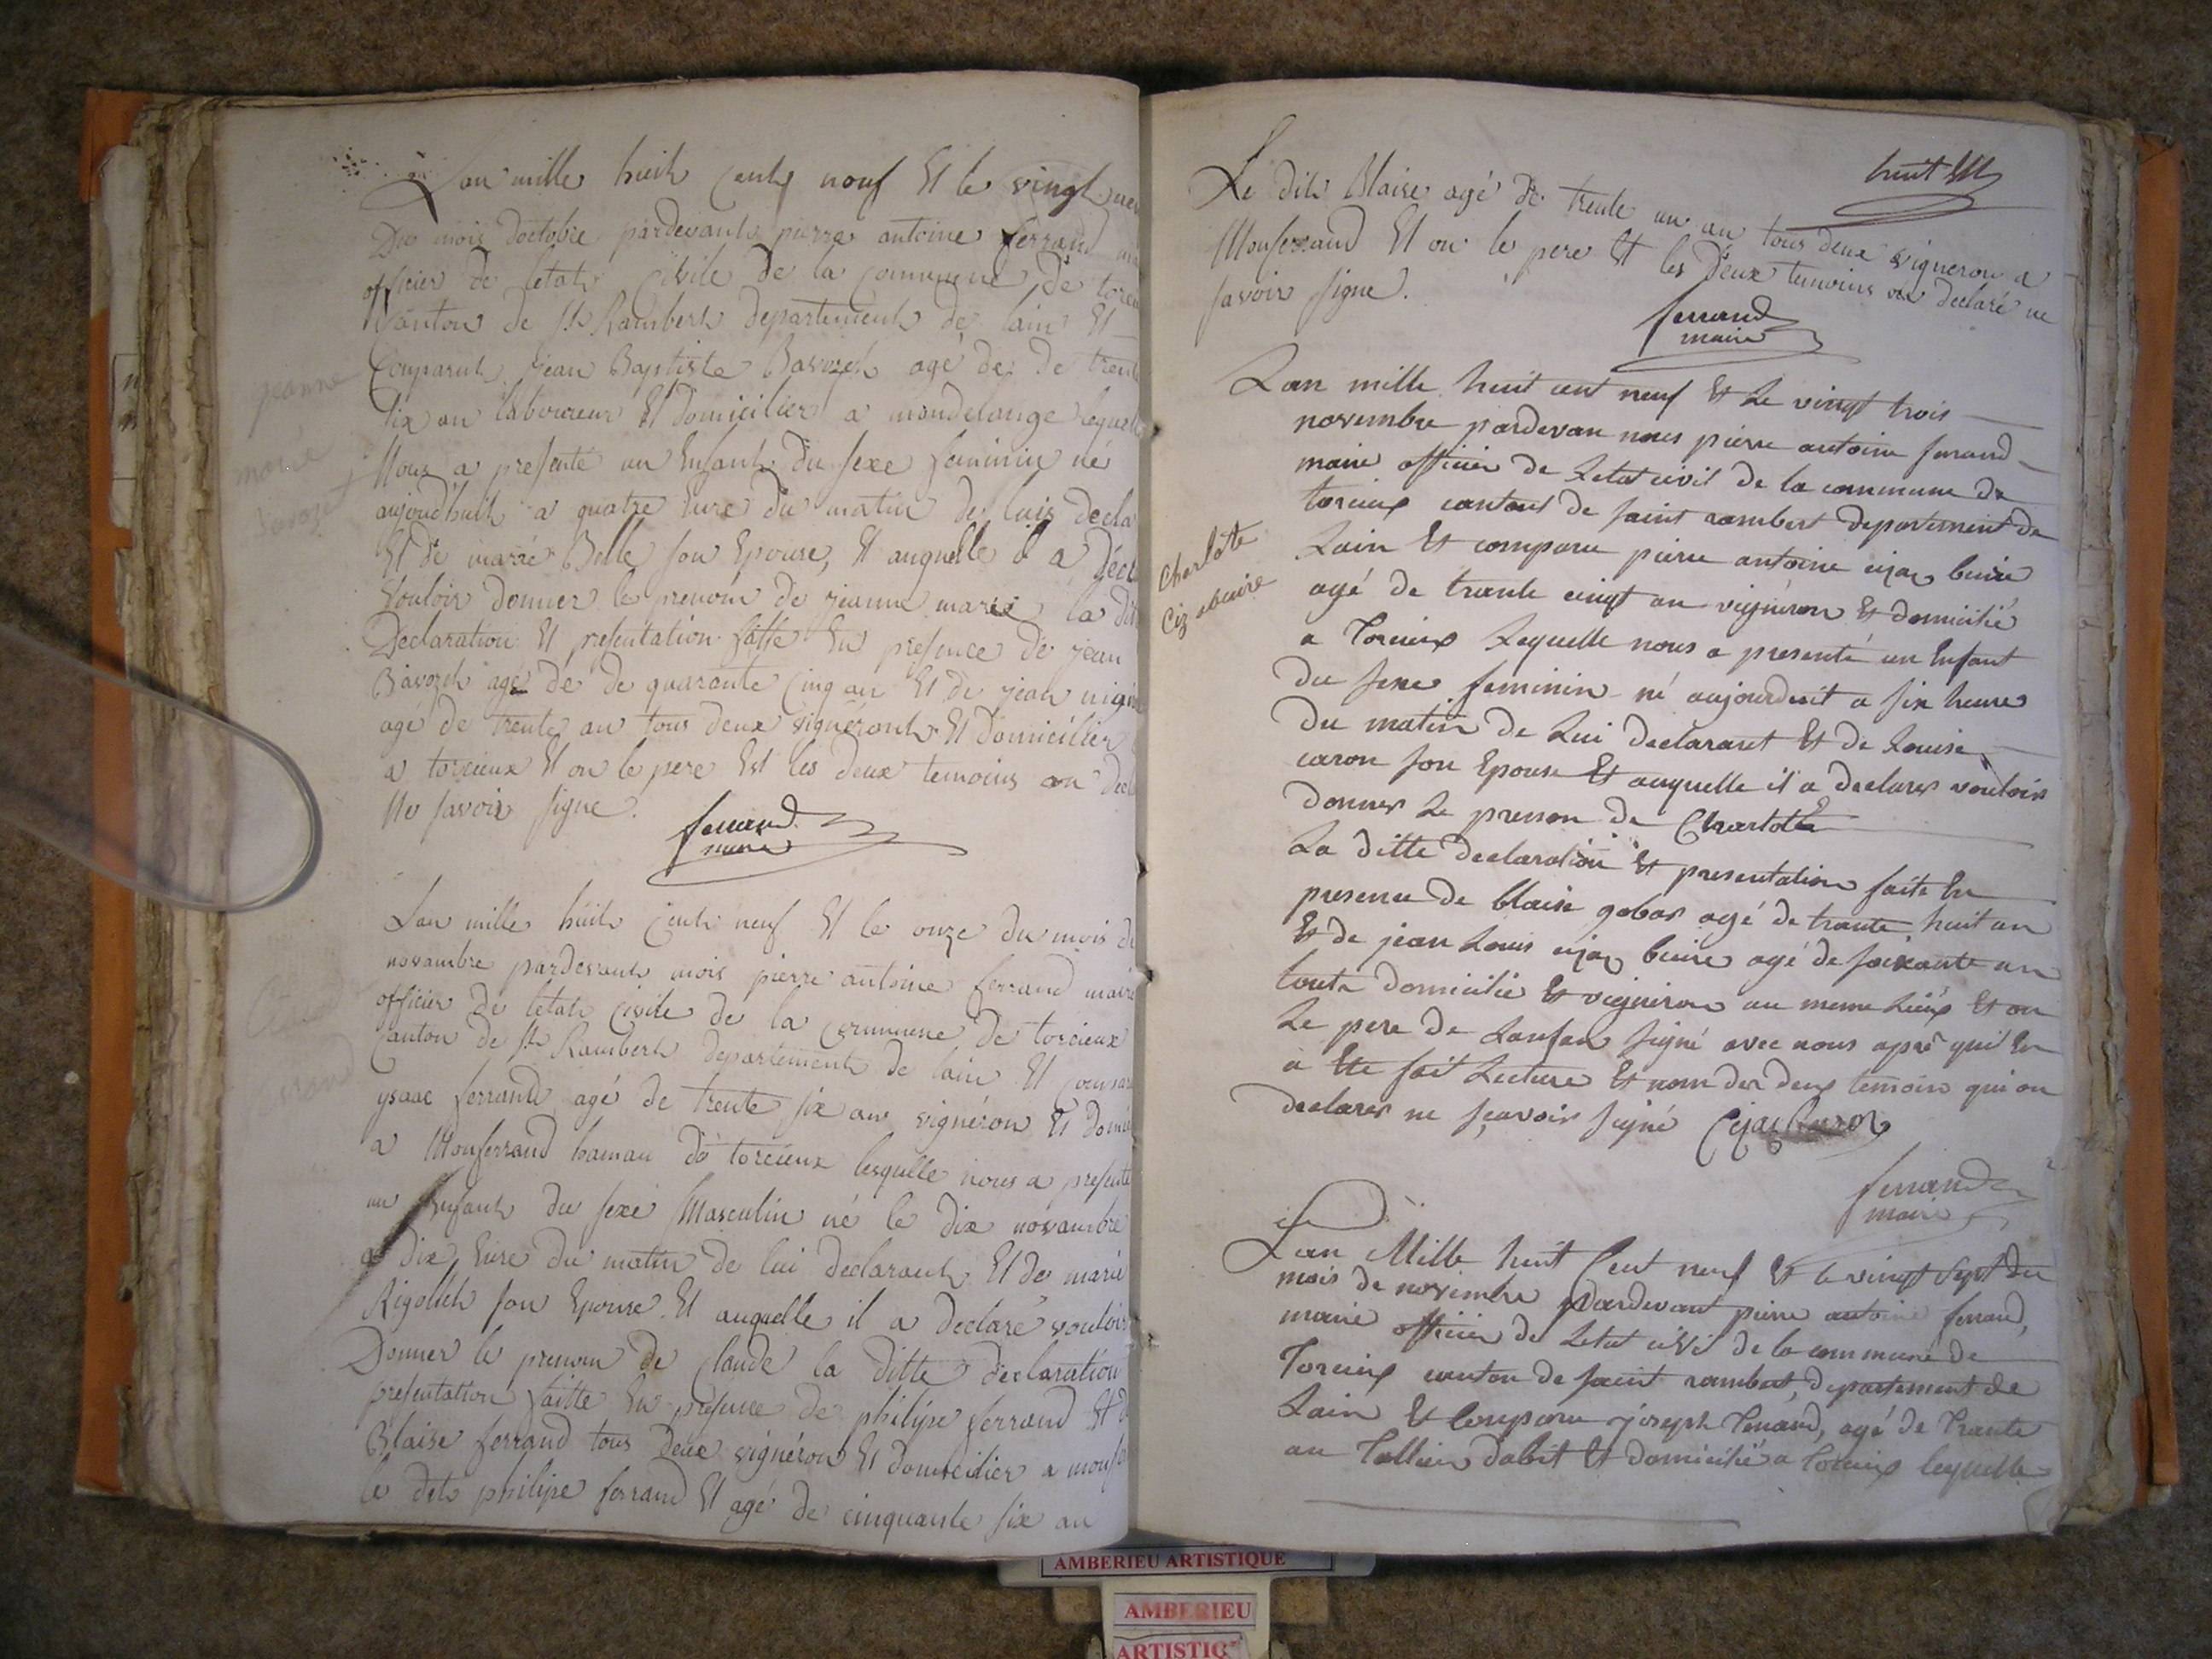 Lan mille huih Cents nouf Et le vingt neu
Du mois doctobre pardevants pierre antoine ferrand
officier de letats Civile de la Commune de torci
Canton de St Rambert departements de lain Et
Comparuts jean Baptiste Bavozet agé de de trente
Six an laboureur Et domicilier a mondelange lequelle
Nous a presenté un Enfants du sexe feminin né
aujoudhuit a quatre hure du matin de luis decla
Et de marie Belle son Epouse, Et auquelle il a décl
Vouloir donner le prenom de jeanne marie la dit
Declaration Et presentation faitte En presence de jean
Bavozet agé de de quarante Cinq an Et de jean
agé de trente an tous deux vignéronts Et domicilier
a torcieux Et on le pere Est les deux temoins on decla
Ne savoir signe.
ferrand
maire
jeanne
marie
bavozet
Lan mille huits Cents neuf Et le onze du mois de
novambre pardevants mois pierre antoine ferrand maire
officier de letats Civile de la Commune de torcieux
Canton de St Rambert departements de lain Et Comparu
ysaac ferrand agé de trente six ans vignéron Et domici
a Monferrand hamau de torcieux lesquelle nous a presenté
un Enfants du sexe Masculin né le dix novambre
a dix hure du matin de lui declarants Et de marie
Rigollet son Epouse Et auquelle il a declaré vouloir
Donner le prenom de Claude la ditte declaration
presentation faitte En presence de philipe ferrand Et d
Blaise ferrand tous deux vignéron Et domicilier a monf
le dits philipe ferrand Et agé de cinquante six an
huit
Le dits Blaise agé de trente un an tous deux vigneron a
Monferrand Et on le pere Et les deux temoins on declaré ne
savoir signe.
ferrand
maire
Lan mille huit cent neuf Et Le vingt trois
novembre pardevan nous pierre antoine ferrand
maire officier de Letat civil de la commune de
torcieux cantont de saint rambert departement de
Lain Et comparu pierre antoine cizac buire
agé de trante cinqt an vigniron Et domicilié
a Torcieux Lequelle nous a presenté un Enfant
du sexe feminin né aujourduit a six heure
du matin de Lui declarant Et de Louise
caron son Epouse Et auquelle il a declarer vouloir
donner Le prenom de Charlotte
La ditte declaration Et presentation faite En
presence de blaise gobar agé de trante huit an
Et de jean Louis cizac buire agé de soixante an
toute domicilié Et vigniron au meme Lieux Et on
Le pere de Lanfan signé avec nous apré qu'il En
a Ete fait Lecture Et nom des deux temoin qui on
declarer ne sçavoir signé
ferrand
maire
Charlote
Ciz abuire
Lan Mille huit Cent neuf Et le vingt Sept du
mois de novembre Pardevant pierre antoine ferrand,
maire officier de Letat civil de la commune de
Torcieux canton de saint rambert, departement de
Lain Et Comparu joseph Tenand, agé de Trante
an Tallieur dabit Et domicilié a Torcieux lequelle
AMBERIEU ARTISTIQUE
AMBERIEU
ARTISTIQ